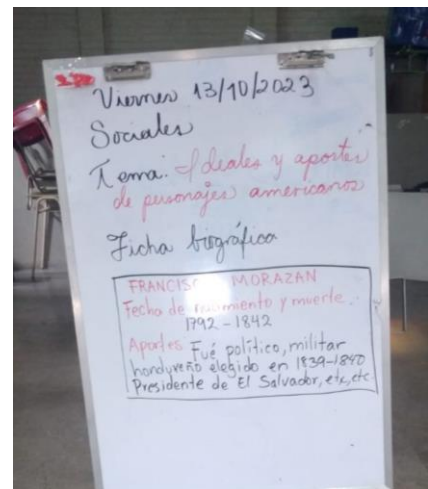 Viernes 13/10/2023
Sociales
Tema: Ideales y aportes
de personajes americanos
Ficha biográfica
FRANCISCO MORAZAN
Fecha de nacimiento y muerte.
1792-1842
Aportes Fué político, militar
hondureño elegido en 1839-1840
Presidente de El Salvador, etc, etc